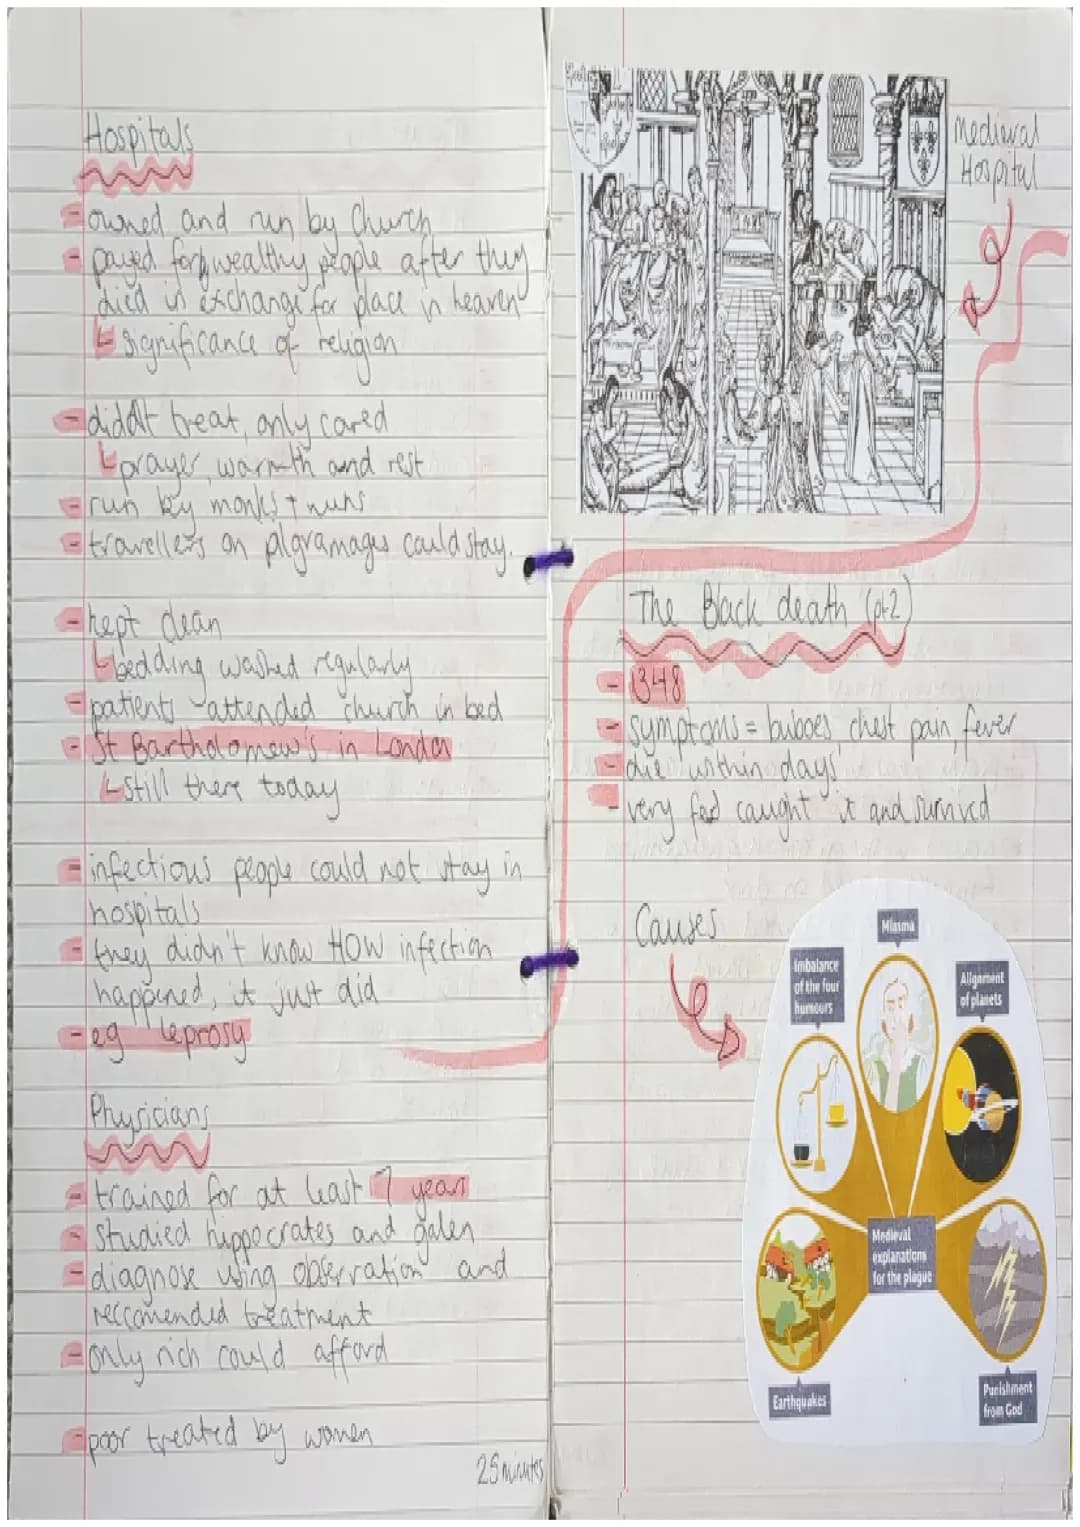 Hospitals
- owned and run by Church
- payed for by wealthy people after they
died in exchange for place in heaven
significance of religion
- didn't treat, only cared
prayer, warmth and rest
- run by monks + nuns
- travellers on pilgramages could stay.
- kept clean
bedding washed regularly
- patients attended church in bed
- St Bartholomew's in London
still there today
- infectious people could not stay in
hospitals
- they didn't know HOW infection
happened, it just did
- eg leprosy
Physicians
- trained for at least 7 years
- studied hippocrates and galen
- diagnose using observation and
reccomended treatment
- only rich could afford
- poor treated by women
25 minutes
Medieval
Hospital
The Black death (pt2)
- 1348
- symptoms = buboes, chest pain, fever
- die within days
- very few caught it and survived
Causes
Miasma
Imbalance
of the four
humours
Alignment
of planets
Medieval
explanations
for the plague
Earthquakes
Punishment
from God